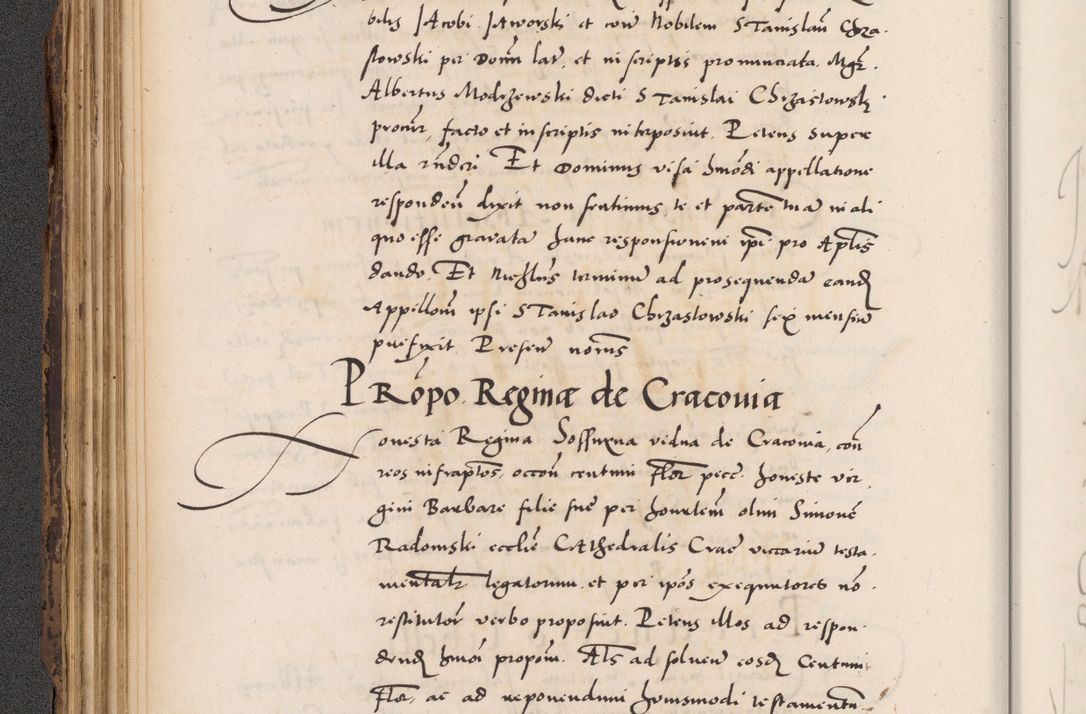 bilis JAcobi JAworski et com̄ Nobilem STanislaū Chrza-
stowski per Domū lat̄, et in scriptis pronunciata. Mgr̄.
Albertus Modrzewski dicti STanislai Chrzastowsky
procūr, facto et in scriptis interposuit. Petens supere
illa rn̄deri Et Dominus visa hmōdi appellatione
respondeū dixit non sentimus te et partē tuā in ali
quo esse gravatā hanc responsionem ipī pro Aplis
dando. Et nichlus terminū ad prosequendā eand
Appellom̄ ipsi STanislao Chrzastowski sex mensiū
prefixit Presen nomīs
PRōpo. Reginæ de Cracouia
onesta Regina Soffinna vidua de Cracouia, con̄
reos infraptos, occon̄ centum Flor pecc̄ honeste vir
gini Barbare filie sue per honrlem̄ olim Simonē
Radomski ecclīe CAthedralis Crac̄ viccariū testa-
mentalr legatorum. et per ipos exequutores nō
restitutor̄ verbo proposuit. Petens illos ad respon-
dend hmōi propom̄. Als ad solven eosd Centum
Flor, ac ad reponendum huiusmodi testamentū